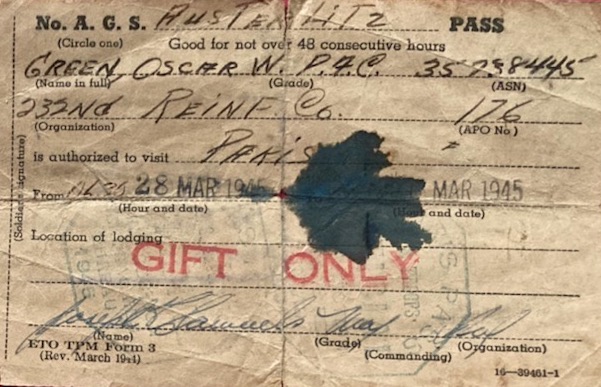 No. A. G. S. AUSTERLITZ PASS
(Circle one) Good for not over 48 consecutive hours
GREEN, OSCAR W. 35738445
(Name in full) (Grade) (ASN)
232ND REINF Co. 176
(Organization) (APO No.)
is authorized to visit PARIS
From 28 MAR 1945 MAR 1945
(Hour and date) (Hour and date)
Location of lodging
GIFT ONLY
Joseph
(Name) (Grade) (Organization)
(Commanding)
ETO TPM Form 3
(Rev. March 1944)
16—39461-1
(Soldier's signature)